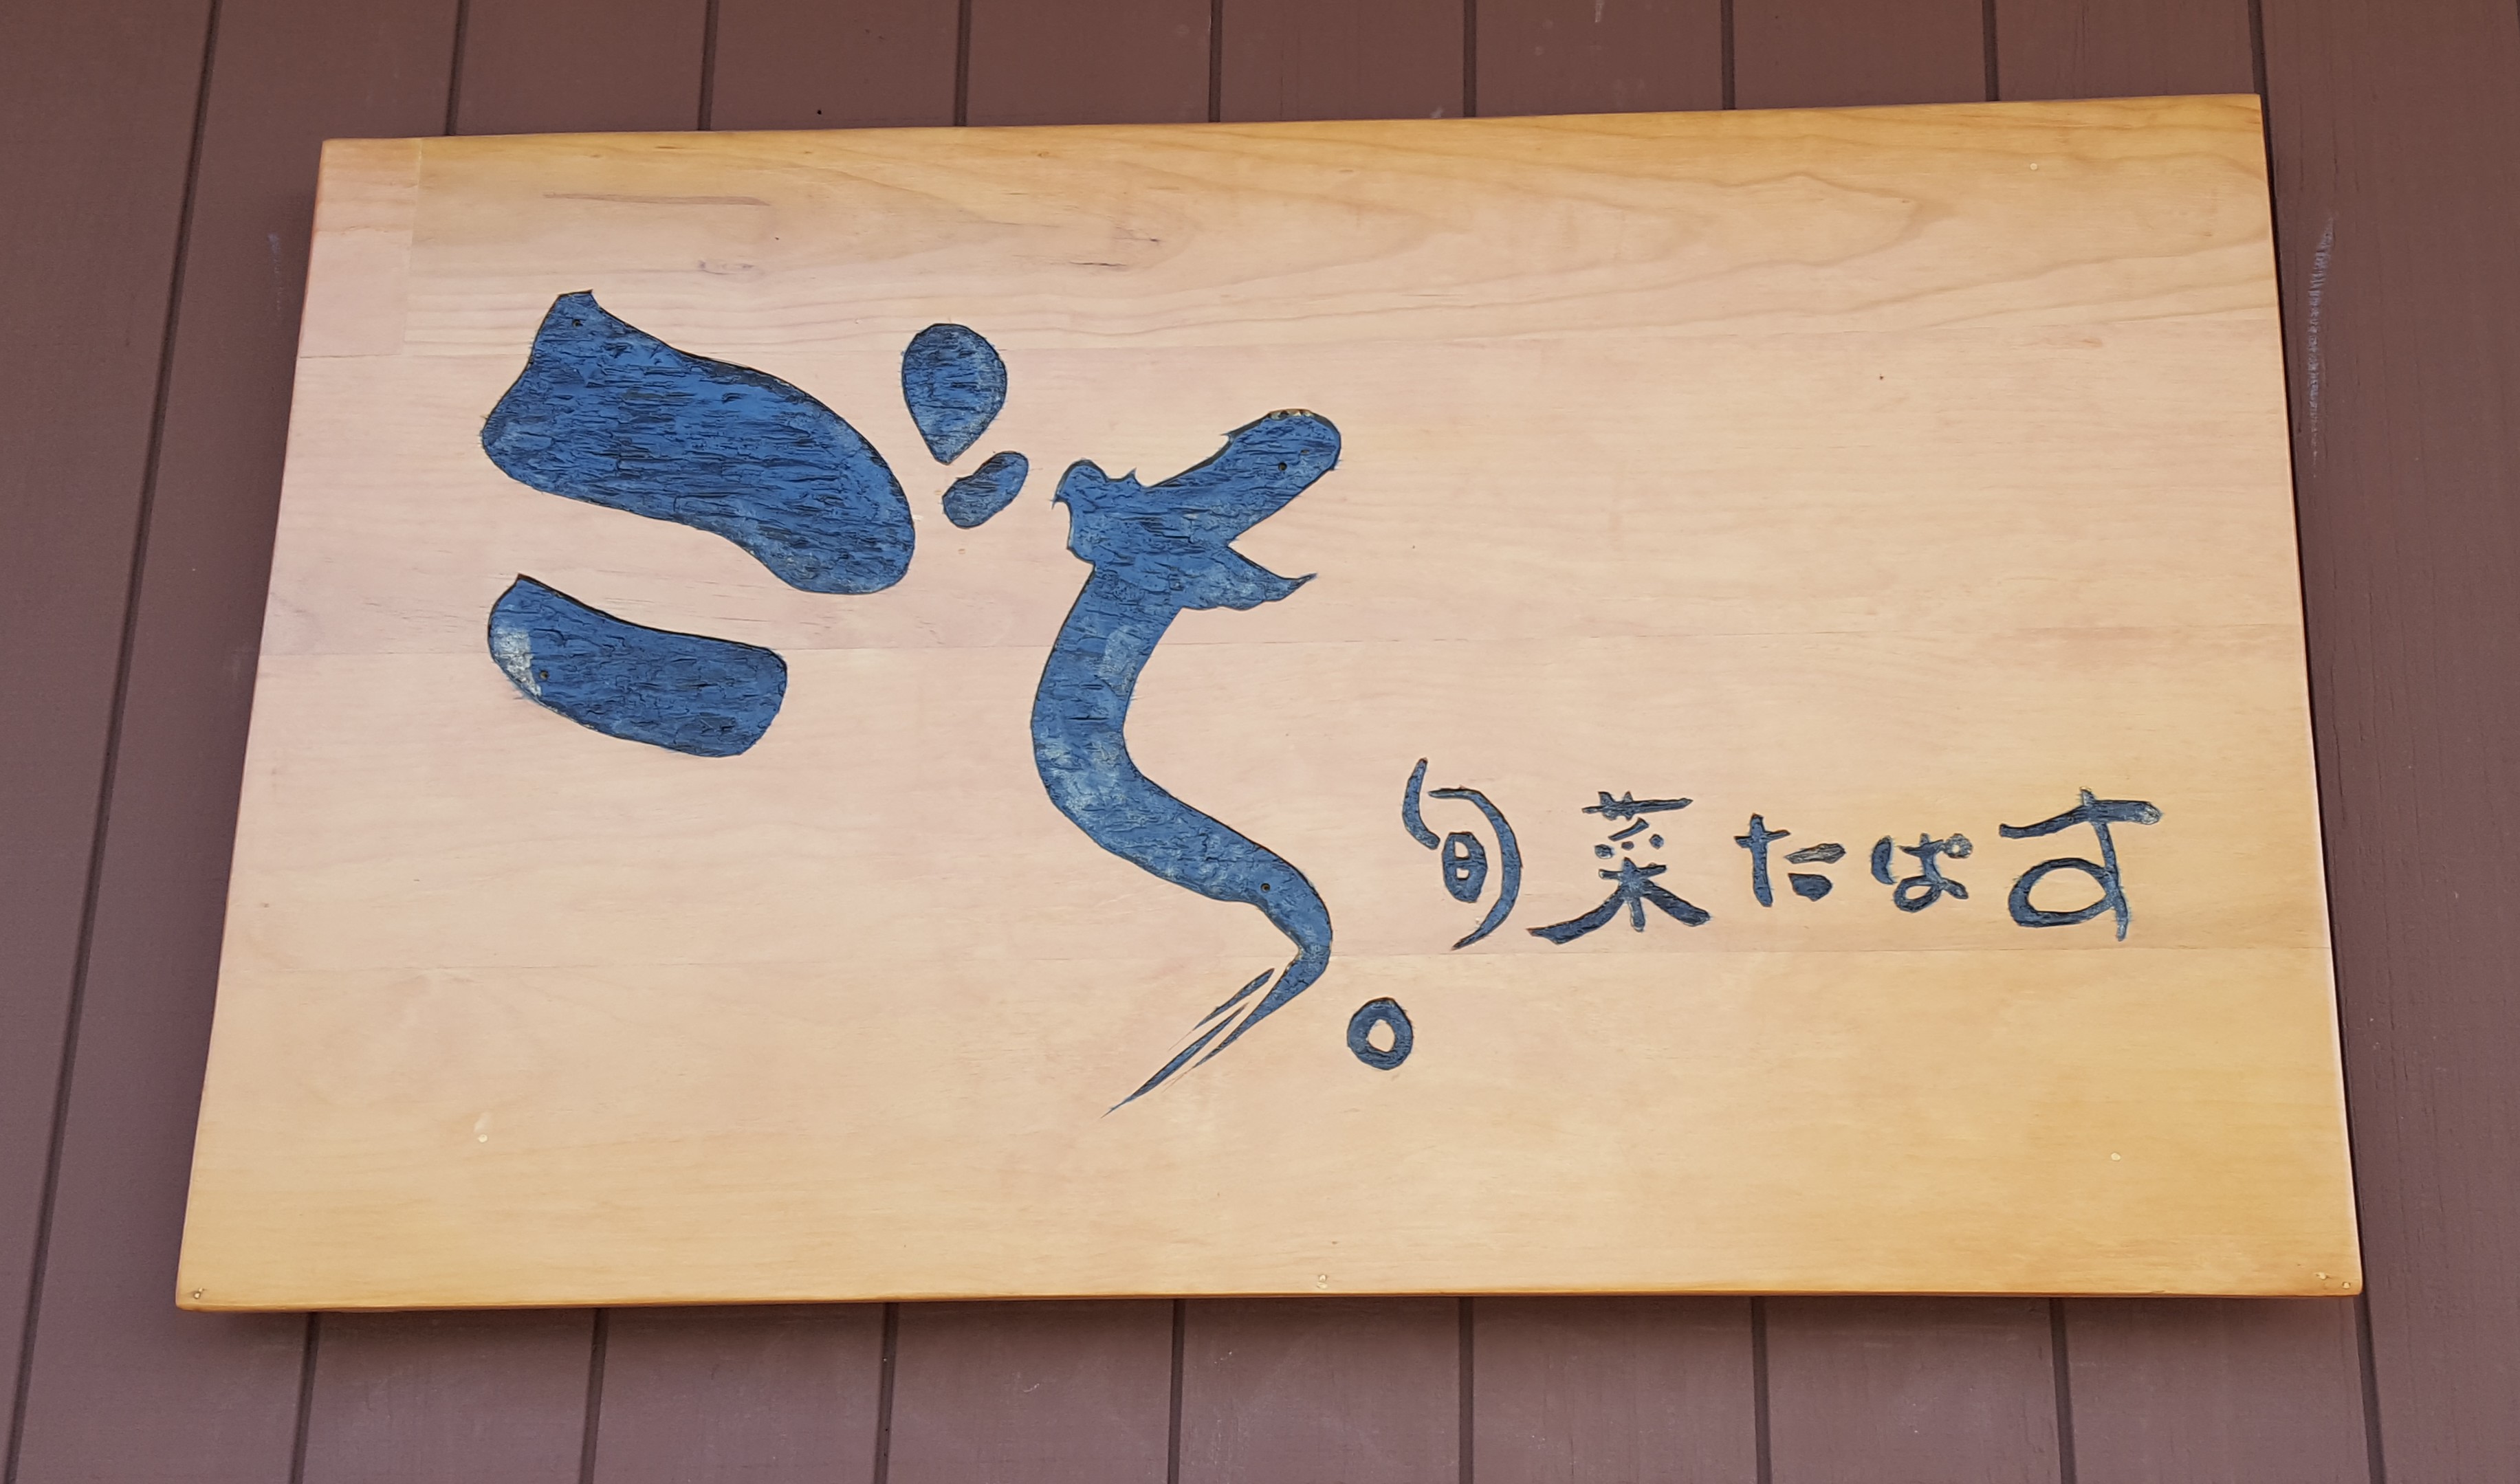 ごそ。
旬菜たぱす